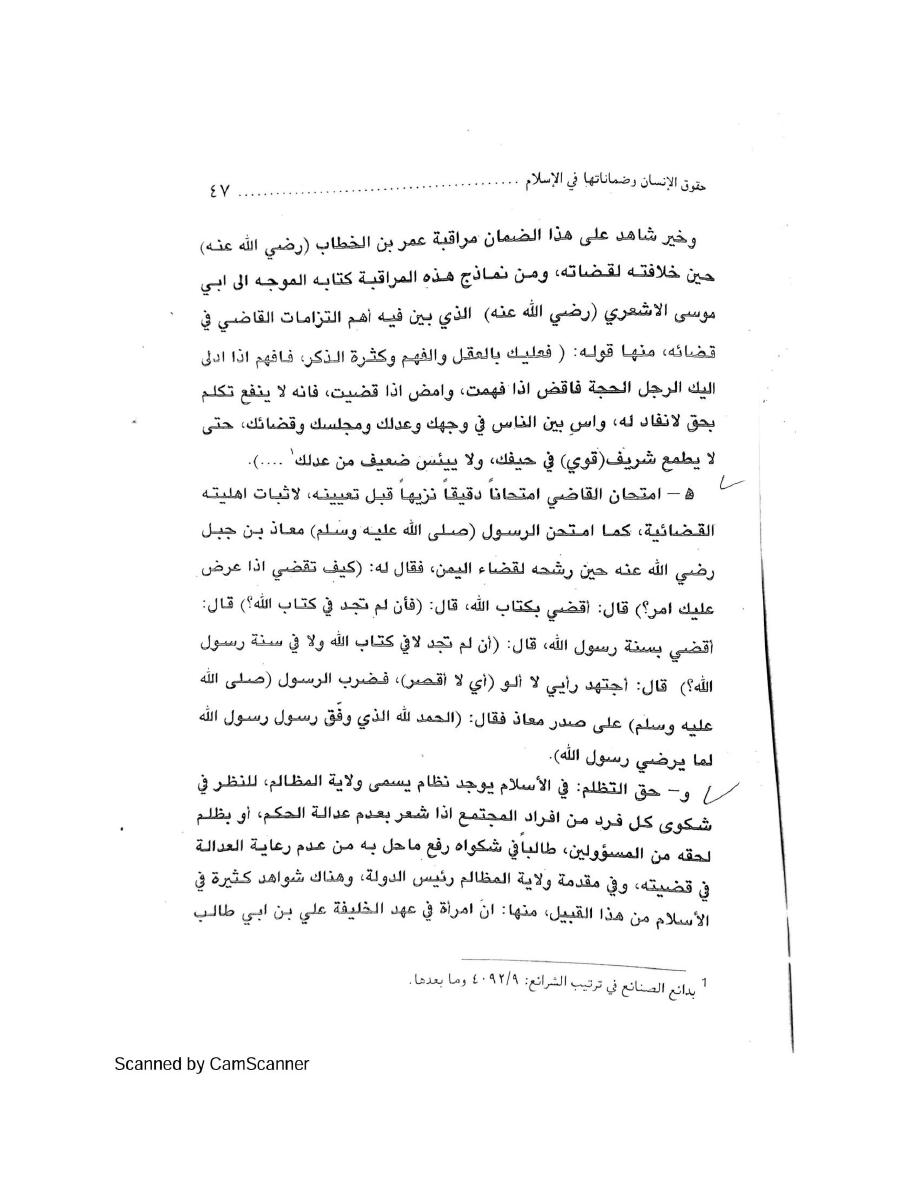 حقوق الإنسان وضماناتها في الإسلام ............................................. ٤٧
وخير شاهد على هذا الضمان مراقبة عمر بن الخطاب (رضي الله عنه)
حين خلافته لقضاته، ومن نماذج هذه المراقبة كتابه الموجه الى ابي
موسى الاشعري (رضي الله عنه) الذي بين فيه أهم التزامات القاضي في
قضائه، منها قوله: ( فعليك بالعقل والفهم وكثرة الذكر، فافهم اذا ادلى
اليك الرجل الحجة فاقض اذا فهمت، وامض اذا قضيت، فانه لا ينفع تكلم
بحق لانفاد له، واس بين الناس في وجهك وعدلك ومجلسك وقضائك، حتى
لا يطمع شريف(قوي) في حيفك، ولا ييئس ضعيف من عدلك¹ ....).
ه – امتحان القاضي امتحاناً دقيقاً نزيهاً قبل تعيينه، لاثبات اهليته
القضائية، كما امتحن الرسول (صلى الله عليه وسلم) معاذ بن جبل
رضي الله عنه حين رشحه لقضاء اليمن، فقال له: (كيف تقضي اذا عرض
عليك امر؟) قال: أقضي بكتاب الله، قال: (فأن لم تجد في كتاب الله؟) قال:
أقضي بسنة رسول الله، قال: (أن لم تجد لافي كتاب الله ولا في سنة رسول
الله؟) قال: أجتهد رأيي لا ألو (أي لا أقصر)، فضرب الرسول (صلى الله
عليه وسلم) على صدر معاذ فقال: (الحمد لله الذي وفّق رسول رسول الله
لما يرضي رسول الله).
و– حق التظلم: في الأسلام يوجد نظام يسمى ولاية المظالم، للنظر في
شكوى كل فرد من افراد المجتمع اذا شعر بعدم عدالة الحكم، أو بظلم
لحقه من المسؤولين، طالباً في شكواه رفع ماحل به من عدم رعاية العدالة
في قضيته، وفي مقدمة ولاية المظالم رئيس الدولة، وهناك شواهد كثيرة في
الأسلام من هذا القبيل، منها: انّ امرأة في عهد الخليفة علي بن ابي طالب
¹ بدائع الصنائع في ترتيب الشرائع: ٤٠٩٢/٩ وما بعدها.
Scanned by CamScanner